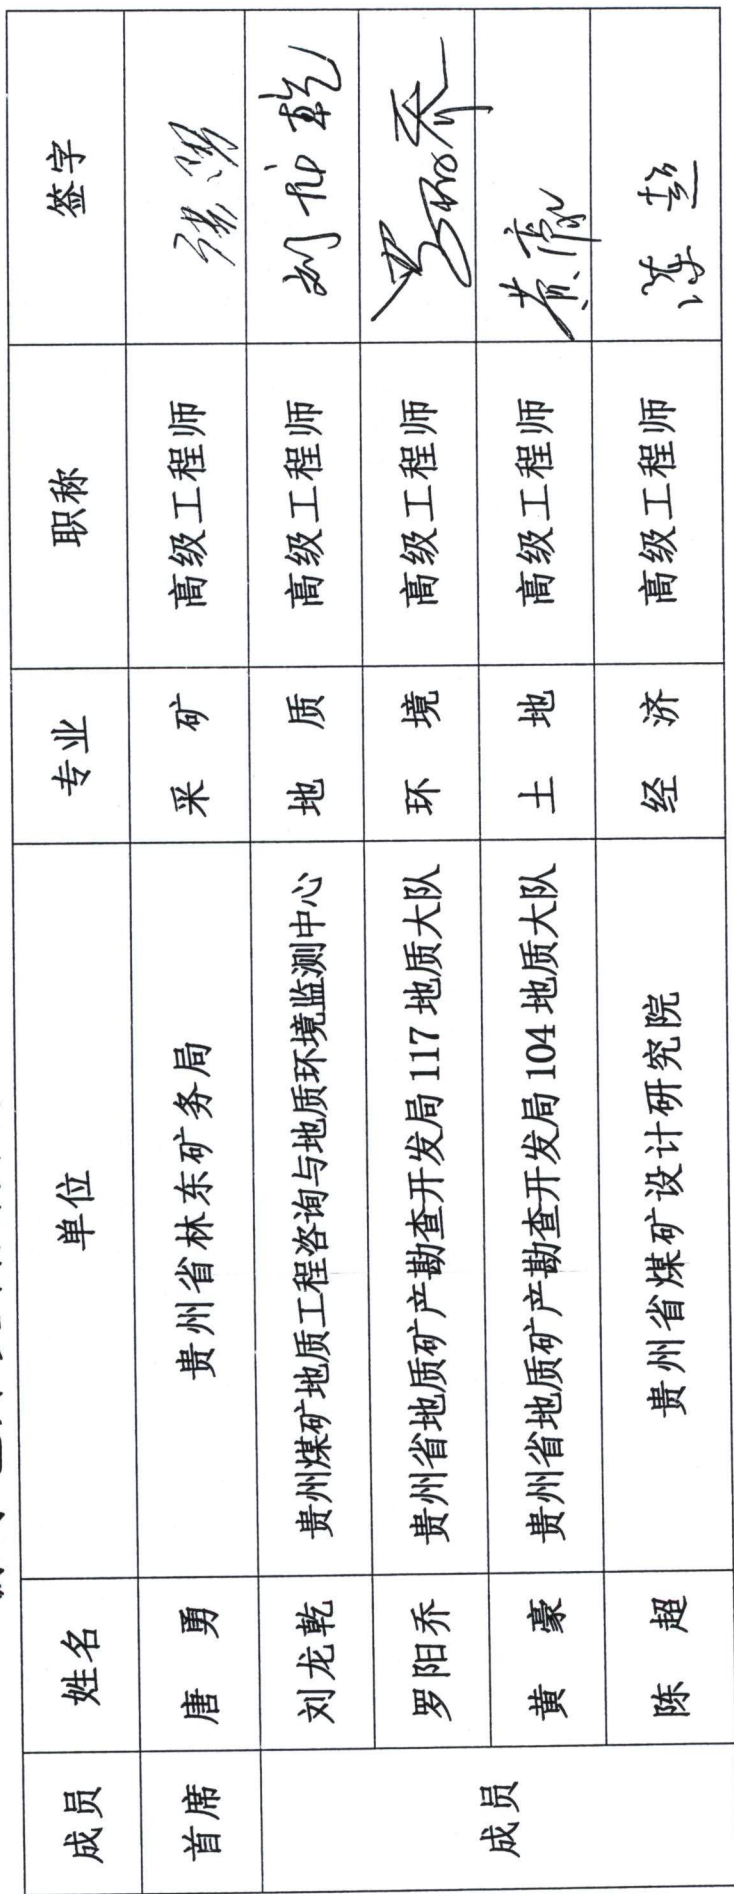 成员 姓名 单位 专业 职称 签字
首席 唐勇 贵州省林东矿务局 采矿 高级工程师
成员 刘龙乾 贵州煤矿地质工程咨询与地质环境监测中心 地质 高级工程师 刘龙乾
罗阳乔 贵州省地质矿产勘查开发局 117 地质大队 环境 高级工程师 罗阳乔
黄豪 贵州省地质矿产勘查开发局 104 地质大队 土地 高级工程师 黄豪
陈超 贵州省煤矿设计研究院 经济 高级工程师 陈超